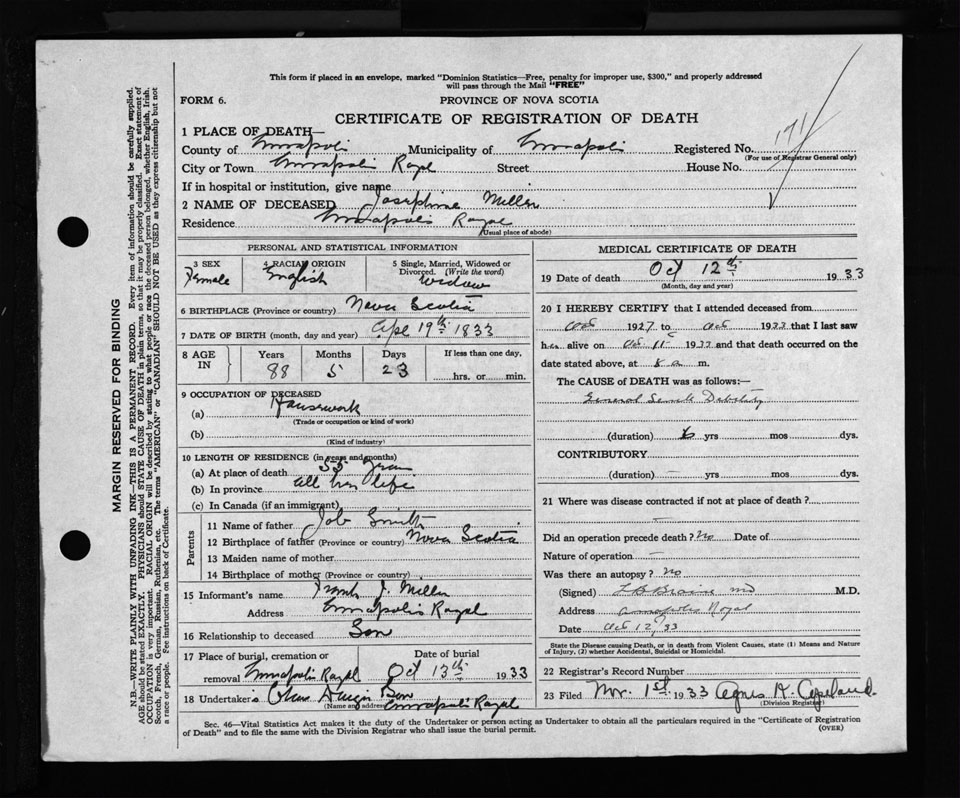 This form if placed in an envelope, marked "Dominion Statistics—Free, penalty for improper use, $300," and properly addressed
will pass through the Mail "FREE"
FORM 6.
PROVINCE OF NOVA SCOTIA
CERTIFICATE OF REGISTRATION OF DEATH
171
1 PLACE OF DEATH—
County of Annapolis Municipality of Annapolis Registered No.
(For use of Registrar General only)
City or Town Annapolis Royal Street House No.
If in hospital or institution, give name
2 NAME OF DECEASED Josephine Miller
Residence Annapolis Royal
(Usual place of abode)
PERSONAL AND STATISTICAL INFORMATION
3 SEX Female
4 RACIAL ORIGIN English
5 Single, Married, Widowed or
Divorced. (Write the word)
Widow
6 BIRTHPLACE (Province or country) Nova Scotia
7 DATE OF BIRTH (month, day and year) Apl 19th 1833
8 AGE IN
Years 88
Months 5
Days 23
If less than one day,
hrs. or min.
9 OCCUPATION OF DECEASED
(a) Housework
(Trade or occupation or kind of work)
(b)
(Kind of industry)
10 LENGTH OF RESIDENCE (in years and months)
(a) At place of death 55 years
(b) In province all her life
(c) In Canada (if an immigrant)
Parents
11 Name of father Job Smith
12 Birthplace of father (Province or country) Nova Scotia
13 Maiden name of mother
14 Birthplace of mother (Province or country)
15 Informant's name Frank J. Miller
Address Annapolis Royal
16 Relationship to deceased Son
17 Place of burial, cremation or
removal Annapolis Royal
Date of burial
Oct 13th 1933
18 Undertaker's Son
(Name and address) Annapolis Royal
MEDICAL CERTIFICATE OF DEATH
19 Date of death Oct 12th 1933
(Month, day and year)
20 I HEREBY CERTIFY that I attended deceased from
1927 to Oct 1933 that I last saw
her alive on Oct 11 1933 and that death occurred on the
date stated above, at 8 a m.
The CAUSE of DEATH was as follows:—
General Senile Debility
(duration) 6 yrs mos dys.
CONTRIBUTORY
(duration) — yrs mos dys.
21 Where was disease contracted if not at place of death?
—
Did an operation precede death? No Date of
Nature of operation —
Was there an autopsy? No
(Signed) L B Braine MD M.D.
Address Annapolis Royal
Date Oct 12, 33
State the Disease causing Death, or in death from Violent Causes, state (1) Means and Nature
of Injury, (2) whether Accidental, Suicidal or Homicidal.
22 Registrar's Record Number
23 Filed Nov. 1st 1933 Agnes A. Copeland.
(Division Registrar)
Sec. 46—Vital Statistics Act makes it the duty of the Undertaker or person acting as Undertaker to obtain all the particulars required in the "Certificate of Registration
of Death" and to file the same with the Division Registrar who shall issue the burial permit.
(OVER)
MARGIN RESERVED FOR BINDING
N.B.—WRITE PLAINLY WITH UNFADING INK—THIS IS A PERMANENT RECORD. Every item of information should be carefully supplied.
AGE should be stated EXACTLY. PHYSICIANS should STATE CAUSE OF DEATH in plain terms, so that it may be properly classified. Exact statement of
OCCUPATION is very important. RACIAL ORIGIN will be described by stating to what people or race the deceased person belonged, whether English, Irish,
Scotch, French, German, Russian, Ruthenian, etc. The terms "AMERICAN" or "CANADIAN" SHOULD NOT BE USED as they express citizenship but not
a race or people. See instructions on back of Certificate.